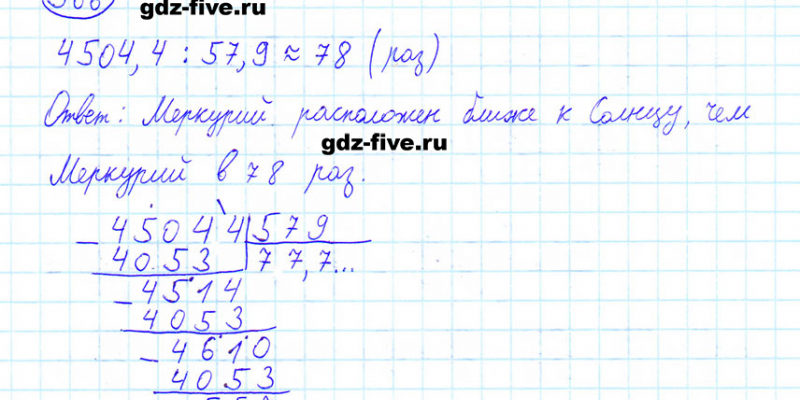 gdz-five.ru
4504,4 : 57,9 ≈ 78 (раз)
Ответ: Меркурий расположен ближе к Солнцу, чем
gdz-five.ru
Меркурий в 78 раз.
45044 579
4053 77,7...
4514
4053
4610
4053